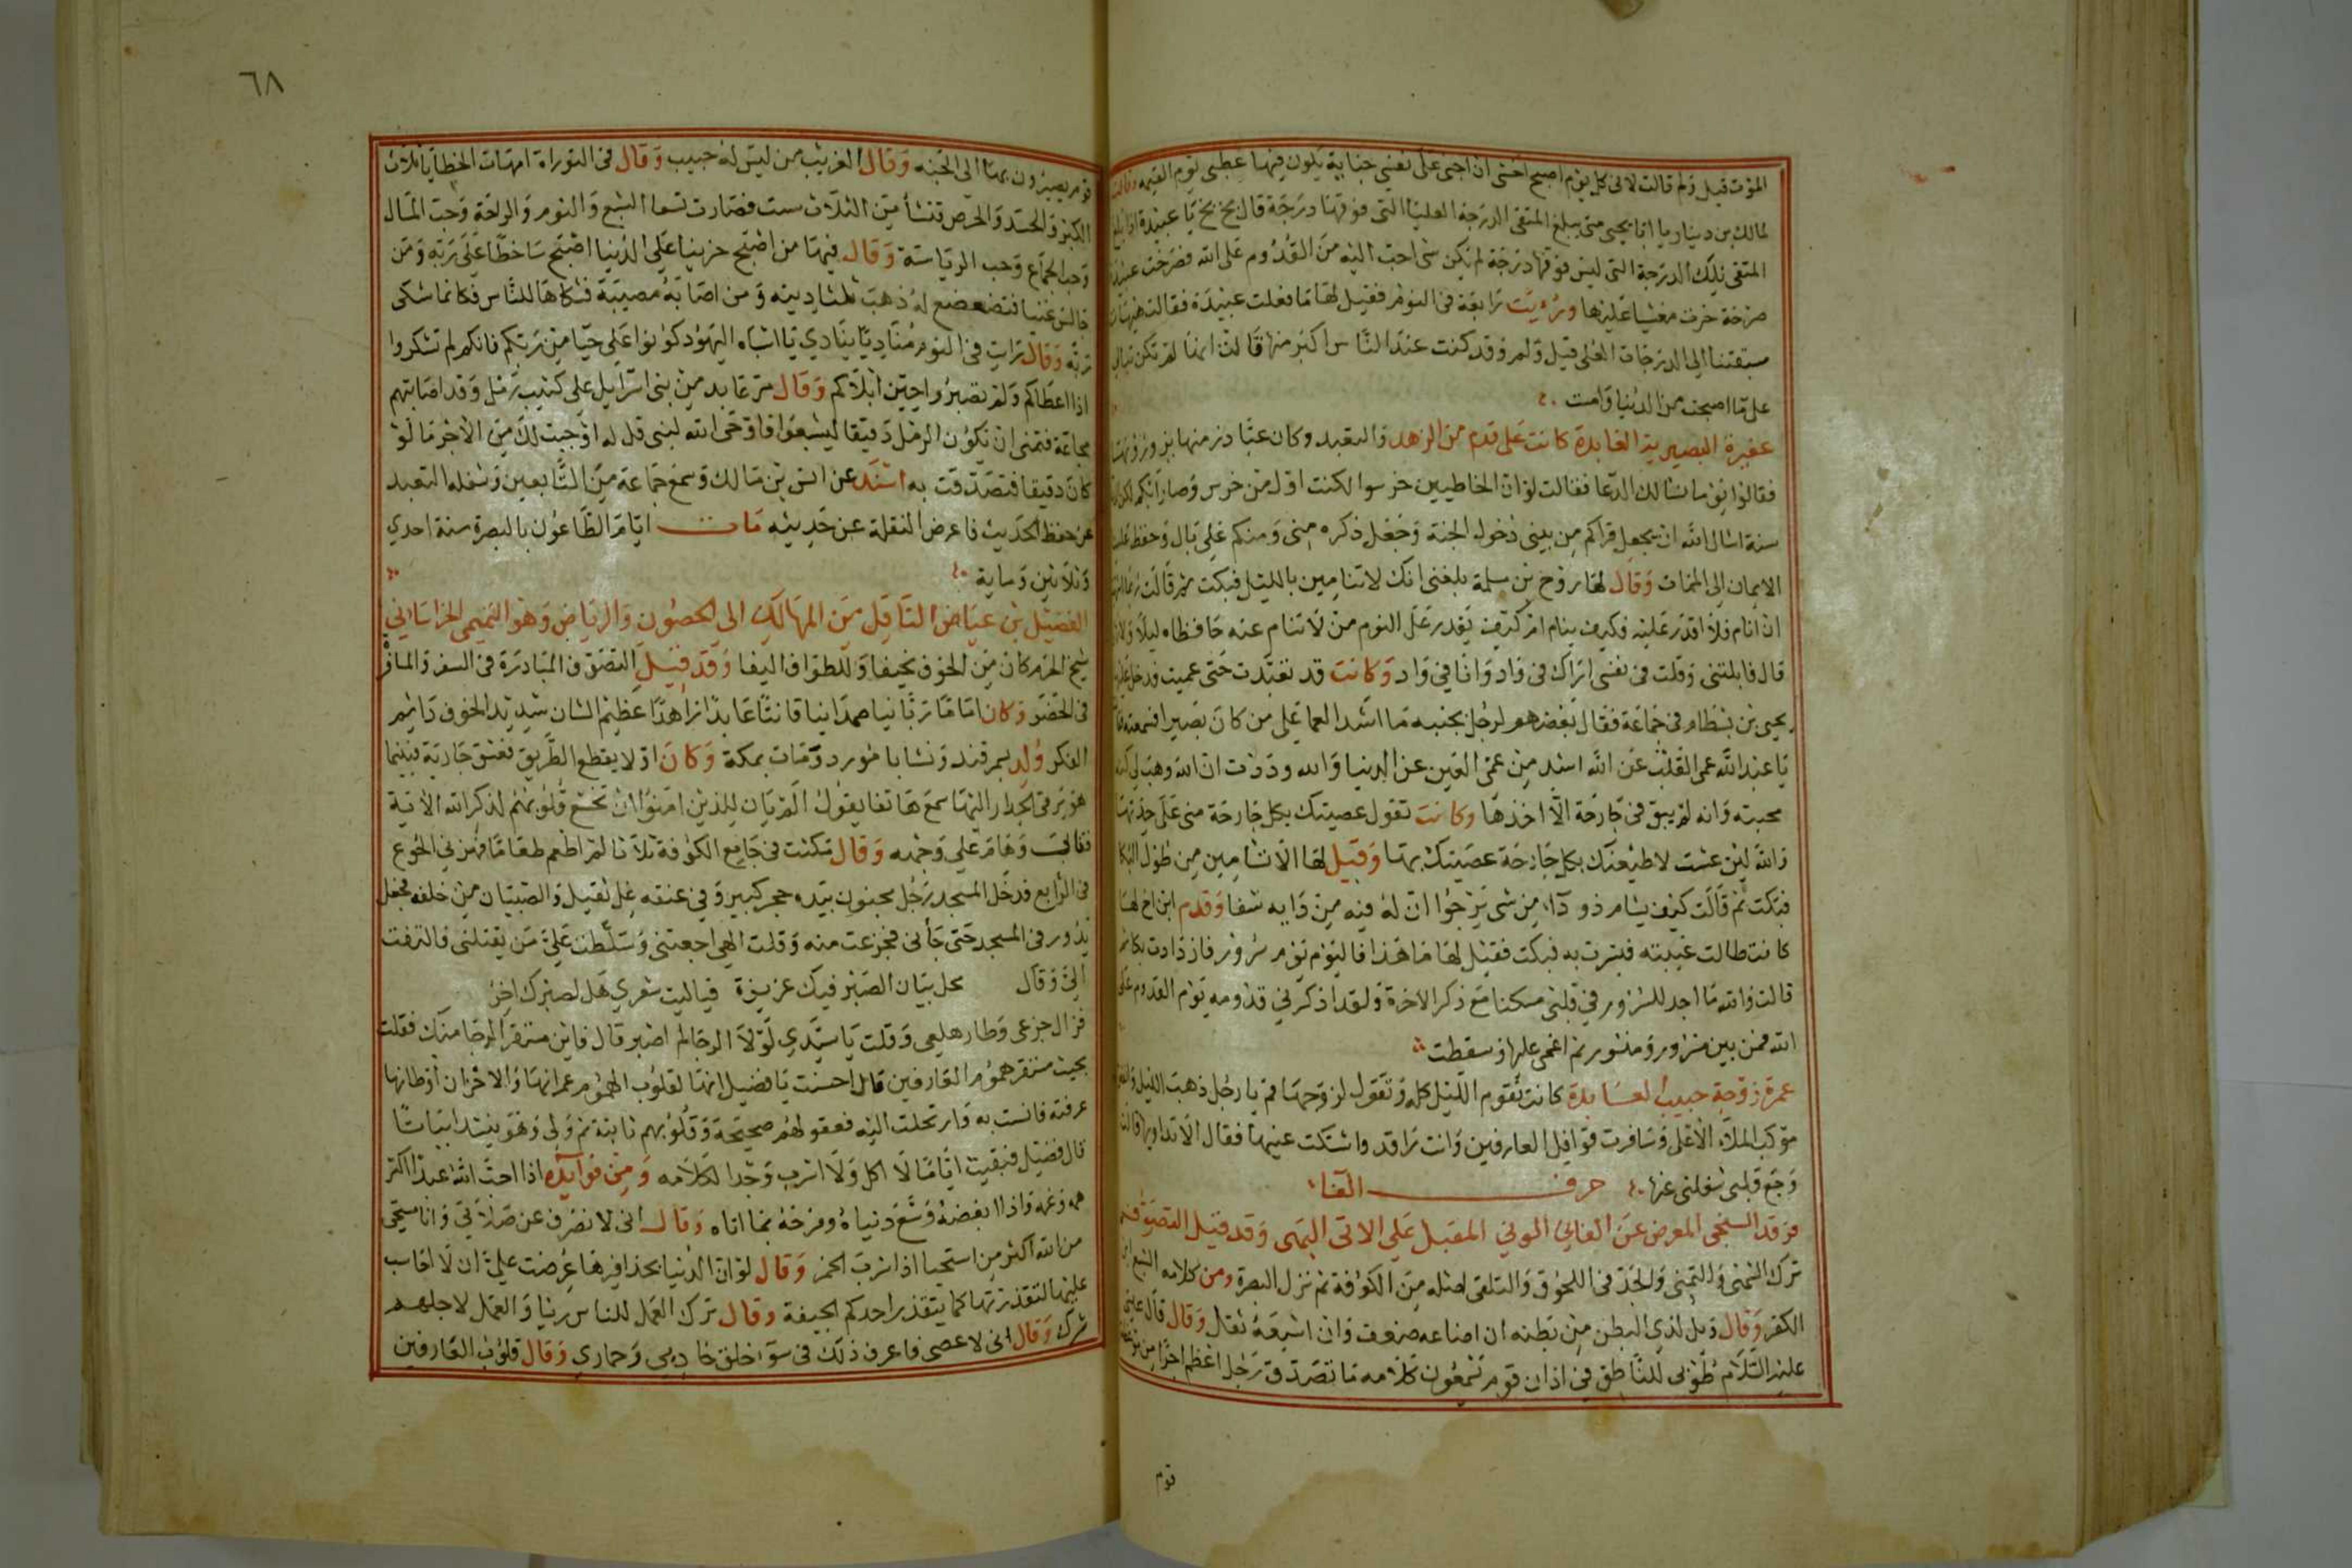 الموت قيل ولم قالت لاني كل يوم اصبح اخشى ان اجني على نفسي جناية يكون فيها عطبي يوم القيمه وقالت
لمالك بن دينار يا ابا يحيى متى يبلغ المتقى الدرجة العليا التي فوقها درجة قال بخ بخ يا عبيدة اذا بلغ
المتقى تلك الدرجة التي ليس فوقها درجة لم يكن شي احب اليه من القدوم على الله فصرخت عبيدة
صرخة خرت مغشيا عليها ورؤيت رابعة في النوم فقيل لها ما فعلت عبيدة فقالت هيهات
سبقتنا الى الدرجات العلى قيل ولم وقد كنت عند الناس اكبر منها قالت انها لم تكن تبالي
على ما اصبحت من الدنيا وامست
عفيرة البصيرية العابدة كانت على قدم من الزهد والتعبد وكان عباد زمنها يزورونها
فقالوا يوما نسالك الدعا فقالت لو ان الخاطيين خرسوا لكنت اول من خرس وصار
سنة اسال الله ان يجعل قراكم من بيني دخول الجنة وجعل ذكره مني ومنكم على بال وحفظ علينا
الايمان الى الممات وقال لها روح بن سلمة بلغني انك لا تنامين بالليل فبكت ثم قالت ربما اشتهيت
ان انام فلا اقدر عليه وكيف ينام ام كيف يقدر على النوم من لا تنام عنه حافظاه ليلا ولا
قال فابلتني وقلت في نفسي اراك في واد وانا في واد وكانت قد تعبدت حتى عميت فدخل عليها
يحيى بن بسطام في جماعة فقال بعضهم لرجل بجنبه ما اشد العما على من كان بصيرا فسمعته فقالت
يا عبد الله عمى القلب عن الله اشد من عمى العين عن الدنيا والله وددت ان الله وهب لي كنه
محبته وانه لم يبق في جارحة الا اخذها وكانت تقول عصيتك بكل جارحة مني على حدتها
والله لين عشت لاطيعنك بكل جارحة عصيتك بها وقيل لها الا تسامين من طول البكا
فبكت ثم قالت كيف يسام ذو دآء من شي يرجوا ان له فيه من دايه شفا وقدم ابن اخ لها
كانت طالت غيبته فبشرت به فبكت فقيل لها ما هذا فاليوم يوم سرور فازدادت بكا ثم
قالت والله ما اجد للسرور في قلبي مسكنا مع ذكر الاخرة ولقد اذكرني قدومه يوم القدوم على
الله فمن بين مسرور ومثبور ثم اغمي عليها وسقطت
عمرة زوجة حبيب العابدة كانت تقوم الليل كله وتقول لزوجها قم يا رجل ذهب الليل
موكب الملاء الاعلى وسافرت قوافل العارفين وانت راقد واشتكت عينيها فقال الا تداويها قالت
وجع قلبي شغلني عنها حرف الفا
فرقد السبخي المعرض عن الفاني الوني المقبل على الاتي البهي وقد قيل التصوف
ترك التمني والتمني والجد في اللحوق والتلقى اصله من الكوفة ثم نزل البصرة ومن كلامه الشبع ابو
الكفر وقال ويل لذي البطن من بطنه ان اضاعه ضعف وان اشبعه ثقل وقال قال عيسى
عليه السلام طوبى للناطق في اذان قوم يسمعون كلامه ما تصدق رجل اعظم اجرا من موعظة
قوم
٦٨
قوم يصيرون بها الى الجنه وقال الغريب من ليس له حبيب وقال في التوراة امهات الخطايا ثلاث
الكبر والحسد والحرص فنشأ من الثلاث ست فصارت تسعا الشبع والنوم والراحة وحب المال
وحب الجماع وحب الرياسة وقال فيها من اصبح حزينا على الدنيا اصبح ساخطا على ربه ومن
جالس غنيا فتضعضع له ذهب ثلثا دينه ومن اصابه مصيبة فشكاها للناس فكانما شكى
ربه وقال رايت في النوم مناديا ينادي يا اشباه اليهود كونوا على حيا من ربكم فانكم لم تشكروا
اذا اعطاكم ولم تصبروا حين ابلاكم وقال مر عابد من بني اسرايل على كثيب رمل وقد اصابتهم
مجاعة فتمنى ان يكون الرمل دقيقا ليشبعوا فاوحى الله لنبي قل له اوجبت لك من الاجر ما لو
كان دقيقا فتصدقت به اسند عن انس بن مالك وسمع جماعة من التابعين وشغله التعبد
عن حفظ الحديث فاعرض النقلة عن حديثه مات ايام الطاعون بالبصرة سنة احدي
وثلاثين ومايه
الفضيل بن عياض الناقل من المهالك الى الحصون والرياض وهو التميمي الخراساني
شيخ الحرم كان من الخوف نحيفا وللطواف اليفا وقد قيل التصوف المبادرة في السفر والمسافر
في الحضر وكان اماما ربانيا صمدانيا قانتا عابدا زاهدا عظيم الشان شديد الخوف دايم
الفكر ولد بسمرقند ونشا بابيورد ومات بمكة وكان اولا يقطع الطريق فعشق جارية فبينما
هو يرقى الجدار اليها سمع هاتفا يقول الم يان للذين امنوا ان تخشع قلوبهم لذكر الله الاية
فتاب وهام على وجهه وقال مكثت في جامع الكوفة ثلاثا لم اطعم طعاما فهزني الجوع
في الرابع فدخل المسجد رجل مجنون بيده حجر كبير وفي عنقه غل ثقيل والصبيان من خلفه فجعل
يدور في المسجد حتى جأني فجزعت منه وقلت الهي اجعتني وسلطت علي من يقتلني فالتفت
الي وقال محل بيان الصبر فيك عزيزة فياليت شعري هل لصبرك اخر
فزال جزعي وطار هلعي وقلت يا سيدي لولا الرجا لم اصبر قال فاين مستقر الرجا منك فقلت
بحيث مستقر هموم العارفين قال احسنت يا فضيل انها لقلوب الهموم عمرانها والاحزان اوطانها
عرفته فانست به وارتحلت اليه فعقولهم صحيحة وقلوبهم ثابتة ثم ولى وهو ينشد ابياتا
قال فضيل فبقيت اياما لا اكل ولا اشرب وجدا لكلامه ومن فوايده اذا احب الله عبدا اكثر
همه وغمه واذا ابغضه وسع دنياه وفرحه بما اتاه وقال اني لانصرف عن صلاتي وانا مستحي
من الله اكثر من استحيا اذا شرب الخمر وقال لو ان الدنيا بحذافيرها عرضت علي ان لا احاسب
عليها لتقذرتها كما يتقذر احدكم الجيفة وقال ترك العمل للناس ريا والعمل لاجلهم
شرك وقال اني لاعصي فاعرف ذلك في سوء خلق خادمي وحماري وقال قلوب العارفين